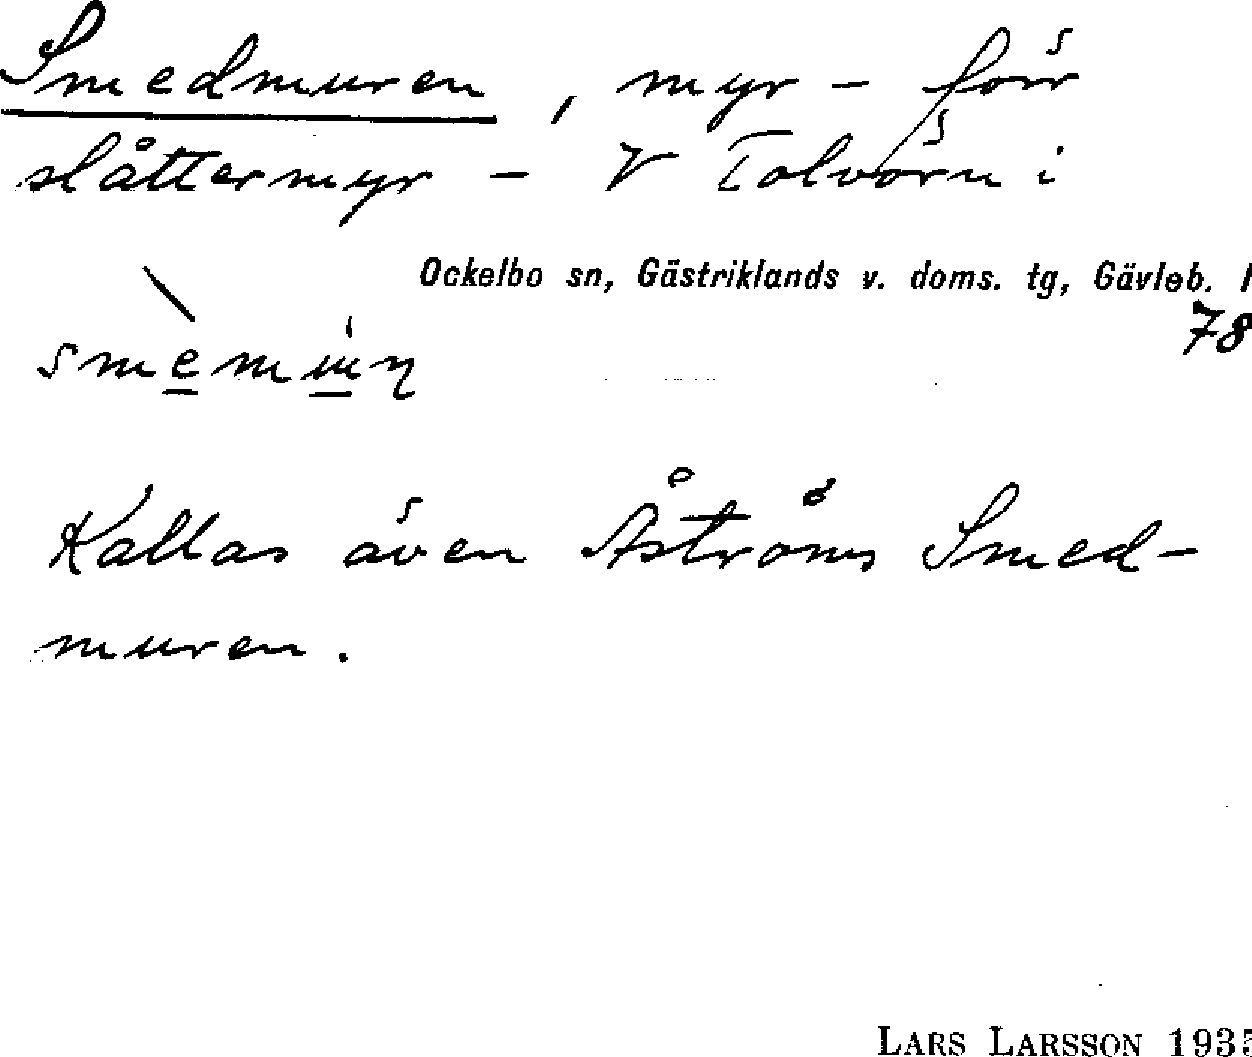 Smedmuren, myr – förr
slåttermyr – V Tolvörn i
Ockelbo sn, Gästriklands v. doms. tg, Gävleb. l
78
Kallas även Åströms Smed-
muren.
LARS LARSSON 1935